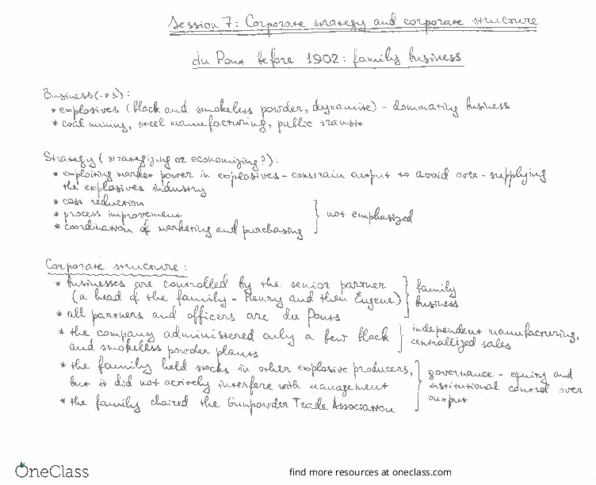 Session 7: Corporate strategy and corporate structure
du Pont before 1902: family business
Business(-es):
* explosives (black and smokeless powder, dynamise) - dominating business
* coal mining, steel manufacturing, public transit
Strategy (strategizing or economizing?):
* exploiting market power in explosives - constrain output to avoid over-supplying
the explosives industry
* cost reduction
* process improvement
* coordination of marketing and purchasing
not emphasized
Corporate structure:
* businesses are controlled by the senior partner
(a head of the family - Henry and then Eugene)
family
business
* all partners and officers are du Ponts
* the company administered only a few black
and smokeless powder plants
independent manufacturing,
centralized sales
* the family held stocks in other explosive producers,
but it did not actively interfere with management
* the family chaired the Gunpowder Trade Association
governance - equity and
institutional control over
output
OneClass
find more resources at oneclass.com